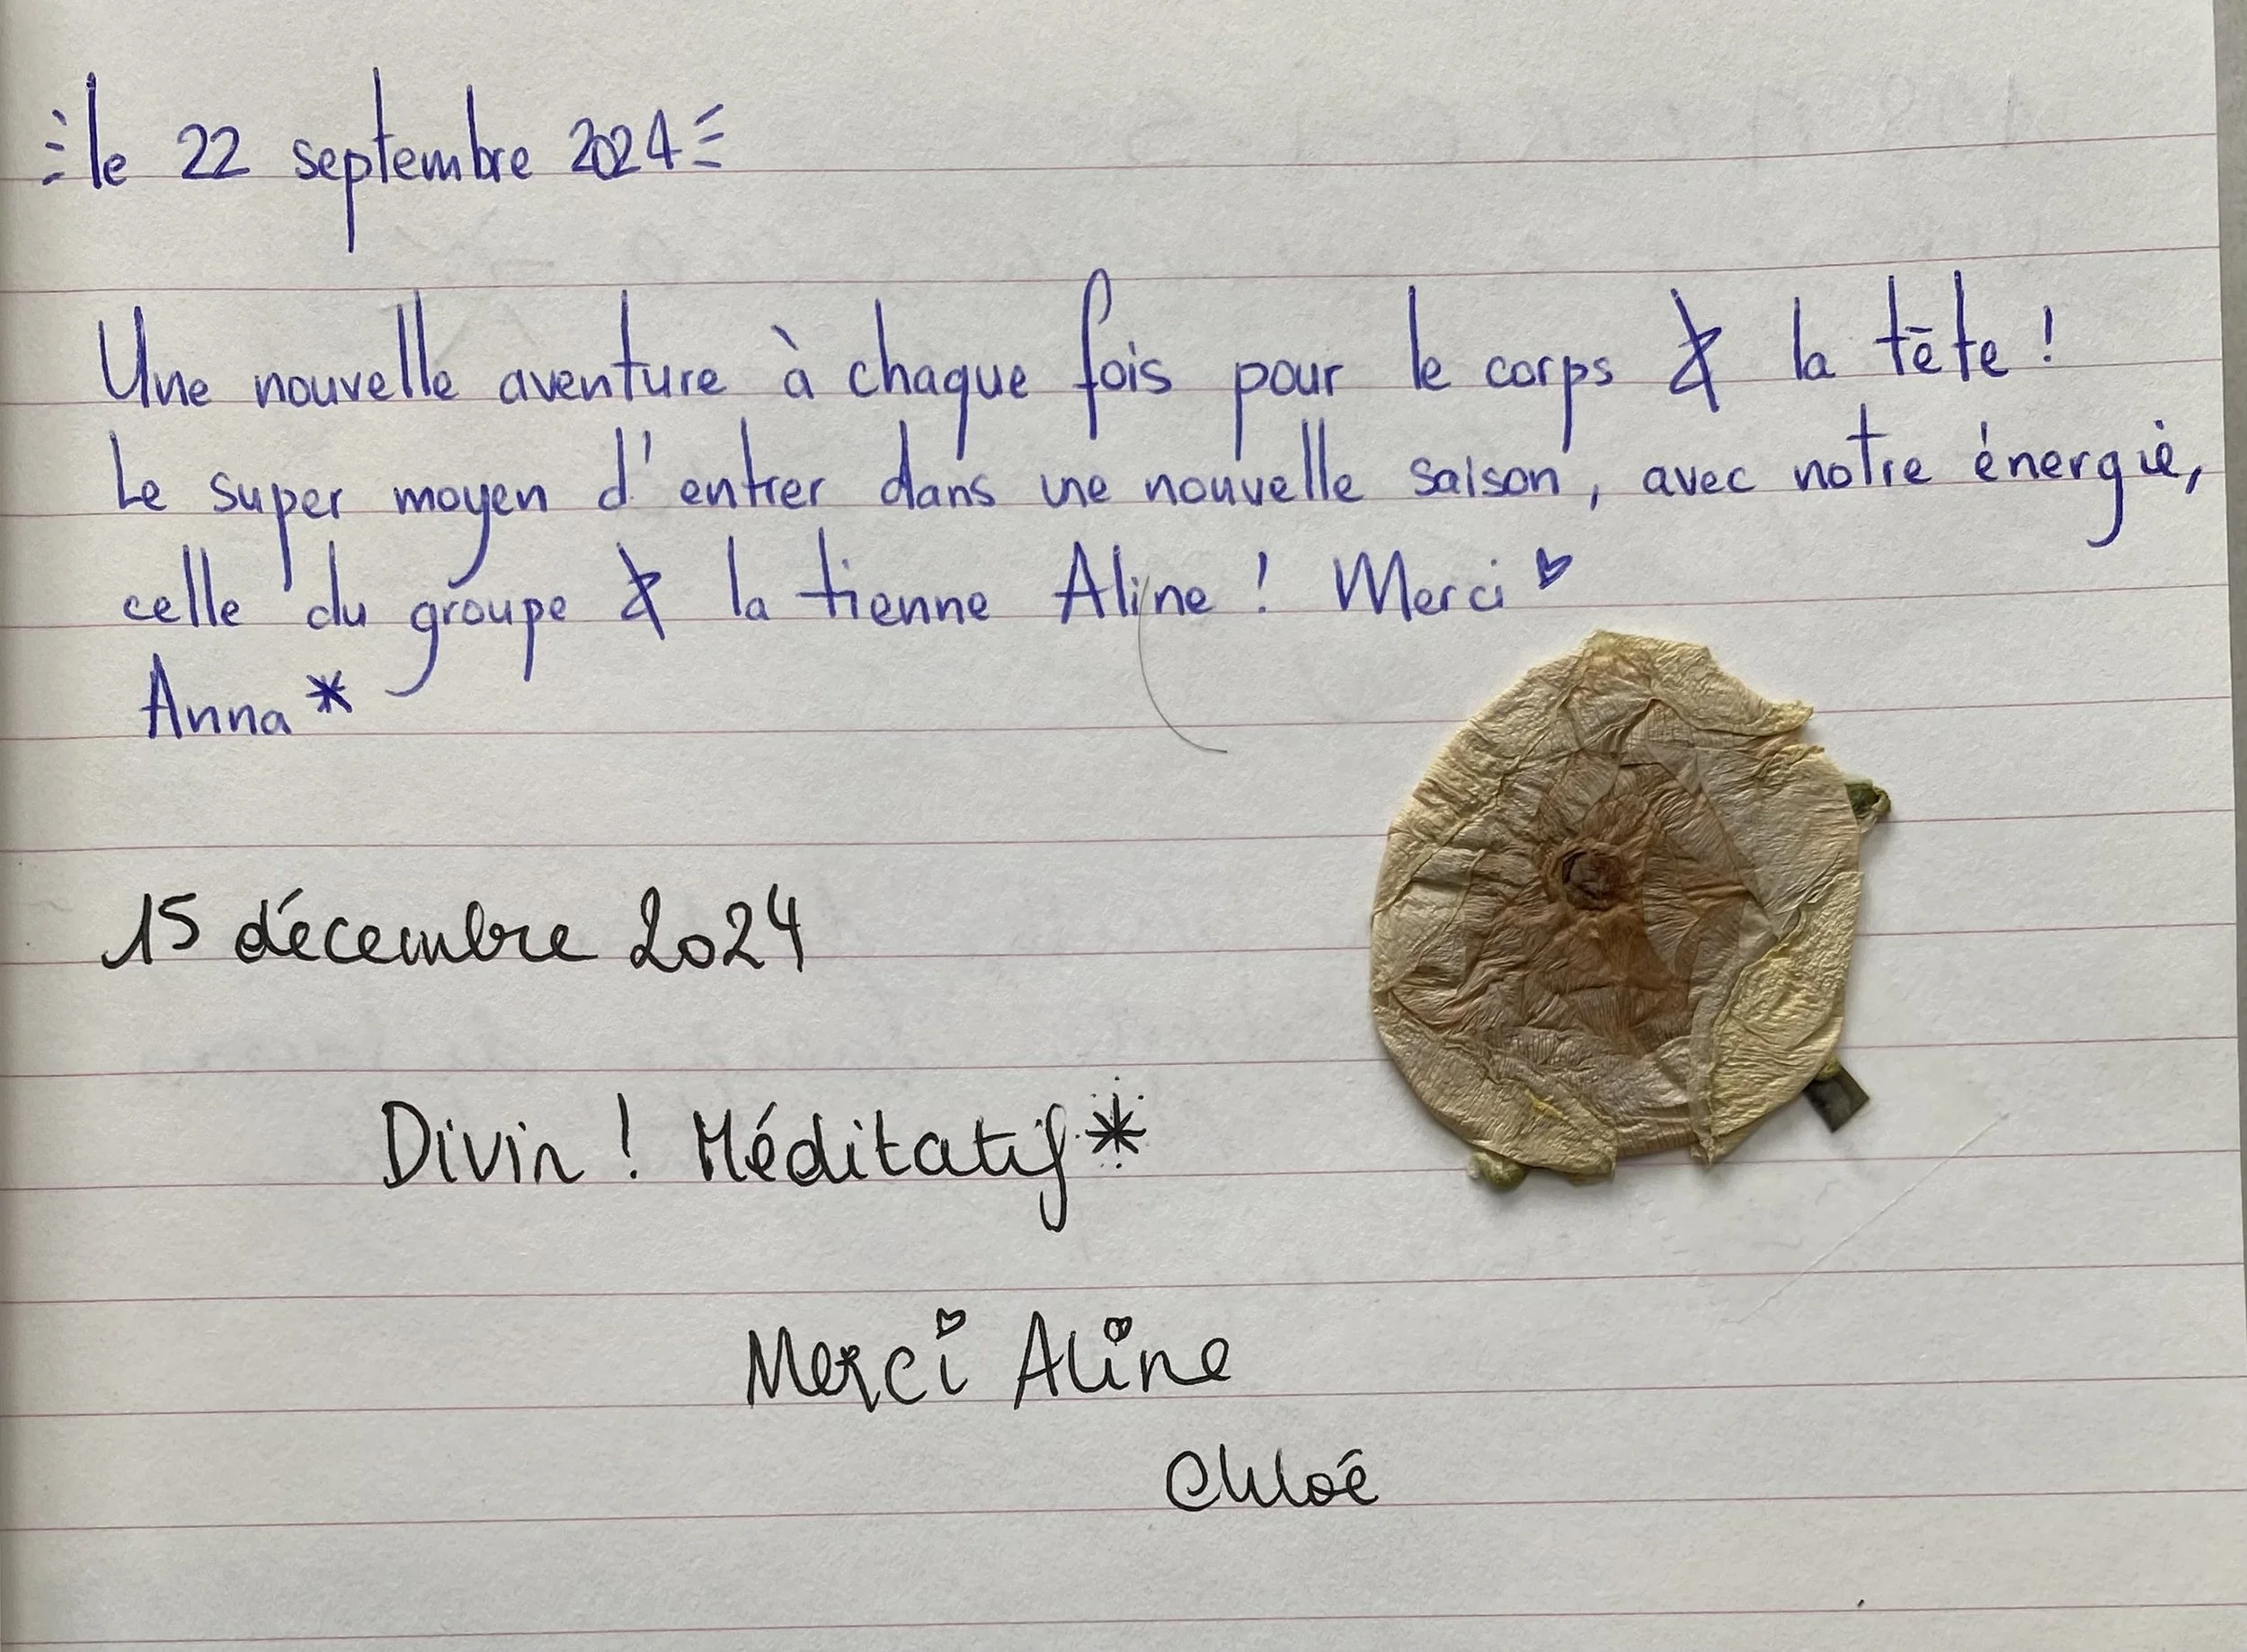 le 22 septembre 2024
Une nouvelle aventure à chaque fois pour le corps & la tête !
Le super moyen d'entrer dans une nouvelle saison, avec notre énergie,
celle du groupe & la tienne Aline ! Merci ♥
Anna *
15 décembre 2024
Divin ! Méditatif *
Merci Aline
Chloé